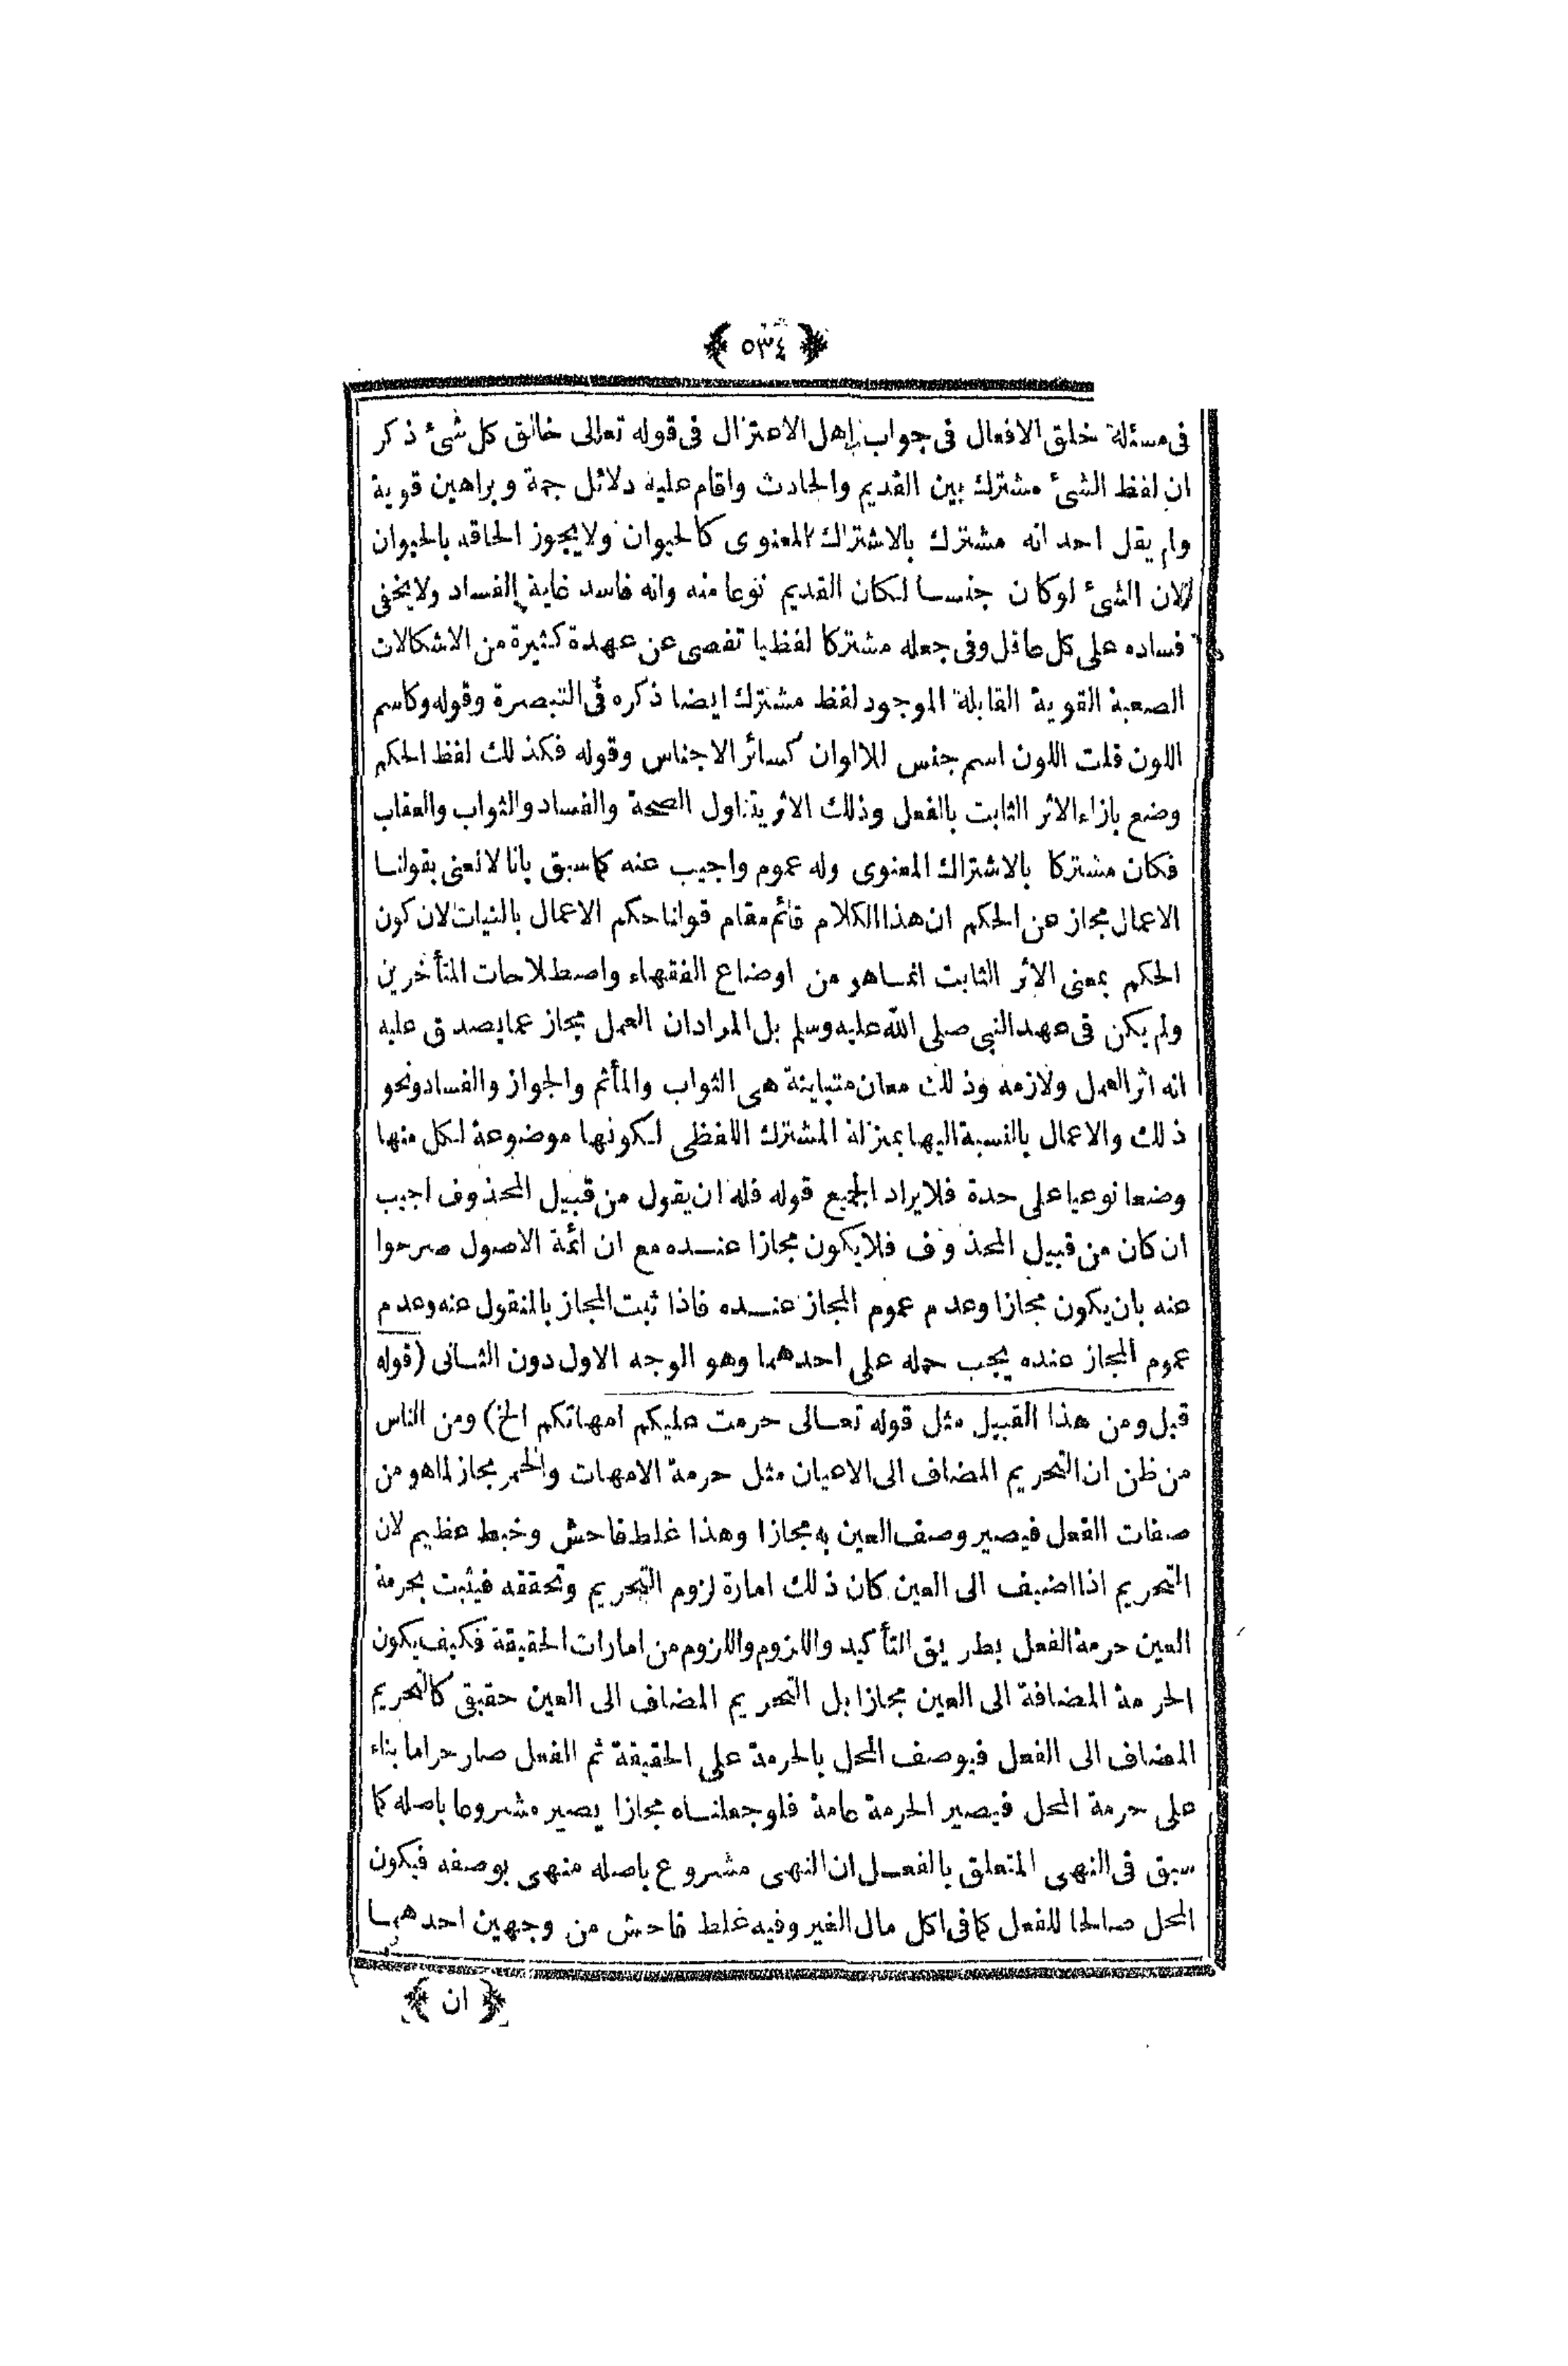 ﴿ ٥٣٤ ﴾
فى مسئلة خلق الافعال فى جواب اهل الاعتزال فى قوله تعالى خالق كل شئ ذكر
ان لفظ الشئ مشترك بين القديم والحادث واقام عليه دلائل جمة وبراهين قوية
ولم يقل احد انه مشترك بالاشتراك المعنوى كالحيوان ولا يجوز الحاقه بالحيوان
لان الشئ لو كان جنسا لكان القديم نوعا منه وانه فاسد غاية الفساد ولا يخفى
فساده على كل عاقل وفى جعله مشتركا لفظيا تفصى عن عهدة كثيرة من الاشكالات
الصعبة القوية القابلة الموجود لفظ مشترك ايضا ذكره فى التبصرة وقوله وكاسم
اللون قلت اللون اسم جنس للالوان كسائر الاجناس وقوله فكذلك لفظ الحكم
وضع بازاء الاثر الثابت بالفعل وذلك الاثر يتناول الصحة والفساد والثواب والعقاب
فكان مشتركا بالاشتراك المعنوى وله عموم واجيب عنه كما سبق بانا لا نعنى بقولنا
الاعمال مجاز عن الحكم ان هذا الكلام قائم مقام قولنا حكم الاعمال بالنيات لان كون
الحكم بمعنى الاثر الثابت انما هو من اوضاع الفقهاء واصطلاحات المتأخرين
ولم يكن فى عهد النبى صلى الله عليه وسلم بل المراد ان العمل مجاز عما يصدق عليه
انه اثر العمل ولازمه وذلك معان متباينة هى الثواب والمأثم والجواز والفساد ونحو
ذلك والاعمال بالنسبة اليها بمنزلة المشترك اللفظى لكونها موضوعة لكل منها
وضعا نوعيا على حدة فلا يراد الجميع قوله فله ان يقول من قبيل المحذوف اجيب
ان كان من قبيل المحذوف فلا يكون مجازا عنده مع ان ائمة الاصول صرحوا
عنه بان يكون مجازا وعدم عموم المجاز عنده فاذا ثبت المجاز بالمنقول عنه وعدم
عموم المجاز عنده يجب حمله على احدهما وهو الوجه الاول دون الثانى (قوله
قيل ومن هذا القبيل مثل قوله تعالى حرمت عليكم امهاتكم الخ) ومن الناس
من ظن ان التحريم المضاف الى الاعيان مثل حرمة الامهات والخمر مجاز لما هو من
صفات الفعل فيصير وصف العين به مجازا وهذا غلط فاحش وخبط عظيم لان
التحريم اذا اضيف الى العين كان ذلك امارة لزوم التحريم وتحققه فيثبت بحرمة
العين حرمة الفعل بطريق التأكيد واللزوم واللزوم من امارات الحقيقة فكيف يكون
الحرمة المضافة الى العين مجازا بل التحريم المضاف الى العين حقيقى كالتحريم
المضاف الى الفعل فيوصف المحل بالحرمة على الحقيقة ثم الفعل صار حراما بناء
على حرمة المحل فيصير الحرمة عامة فلو جعلناه مجازا يصير مشروعا باصله كما
سبق فى النهى المتعلق بالفعل ان النهى مشروع باصله منهى بوصفه فيكون
المحل صالحا للفعل كما فى اكل مال الغير وفيه غلط فاحش من وجهين احدهما
﴿ ان ﴾